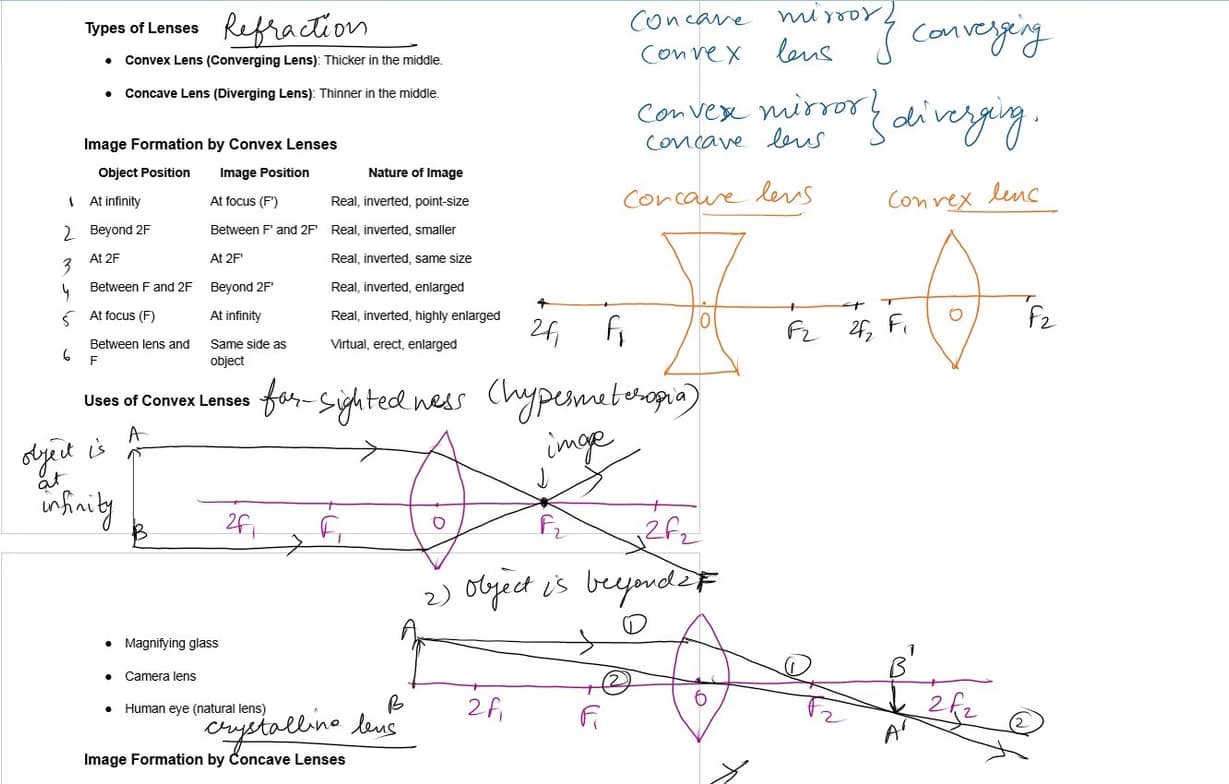 Types of Lenses Refraction
• Convex Lens (Converging Lens): Thicker in the middle.
• Concave Lens (Diverging Lens): Thinner in the middle.
concave mirror } converging
convex lens
convex mirror } diverging.
concave lens
Image Formation by Convex Lenses
Object Position Image Position Nature of Image
1 At infinity At focus (F') Real, inverted, point-size
2 Beyond 2F Between F' and 2F' Real, inverted, smaller
3 At 2F At 2F' Real, inverted, same size
4 Between F and 2F Beyond 2F' Real, inverted, enlarged
5 At focus (F) At infinity Real, inverted, highly enlarged
6 Between lens and F Same side as object Virtual, erect, enlarged
concave lens convex lens
2f₁ F₁ O F₂ 2f₂ F₁ O F₂
Uses of Convex Lenses far-sightedness (hypermeteropia)
object is at infinity
A
B
image
2F₁ F₁ O F₂ 2F₂
2) object is beyond 2F
A
B
① ② ① ②
2f₁ F₁ O F₂ 2f₂
B'
A'
• Magnifying glass
• Camera lens
• Human eye (natural lens)
crystalline lens
Image Formation by Concave Lenses